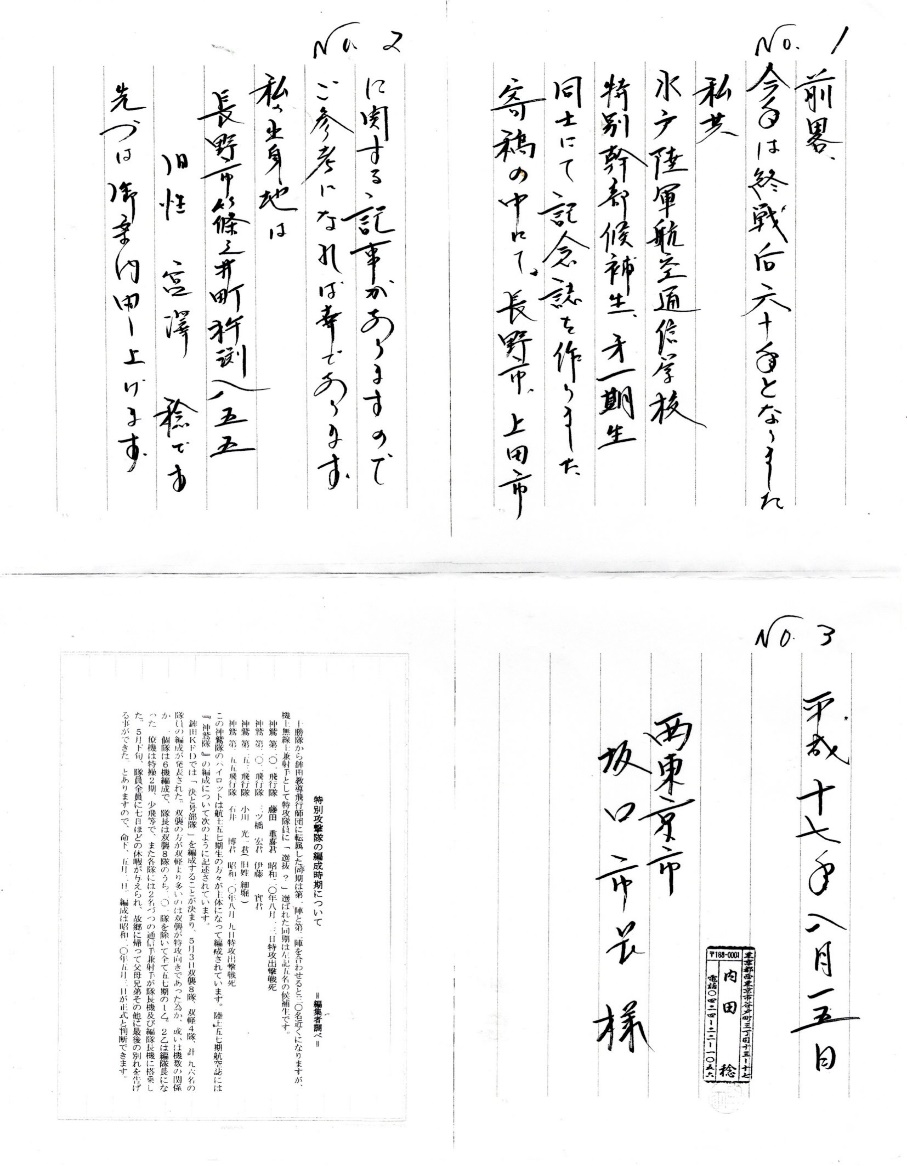 No. 1
前畧、
今年は終戦后六十年となりました
私共
水戸陸軍航空通信学校
特別幹部候補生、才一期生
同士にて記念誌を作りました
寄稿の中にて、長野市、上田市
No. 2
に関する記事がありますので
ご参考になれば幸であります
私の出身地は
長野市篠ノ井町杵渕八五五
旧性 宮澤 稔です
先づは御案内申し上げます
No. 3
平成十七年八月一五日
西東京市
坂口市長様
〒188-0001
東京都西東京市谷戸町三丁目十五ー十七
内田 稔
電話〇四二四ー二二ー一〇五六
特別攻撃隊の編成時期について
=編集者調べ=
十勝隊から鉾田教導飛行師団に転属した同期は第一陣と第二陣を合わせると二〇名近くになりますが、
機上無線士兼射手として特攻隊員に「選抜?」選ばれた同期は左記五名の候補生です。
神鷲 第二〇一飛行隊 藤田 重喜君 昭和二〇年八月一三日特攻出撃戦死
神鷲 第二〇一飛行隊 三ツ橋 宏君 伊藤 實君
神鷲 第二五二飛行隊 小川 光君(旧姓 細堀)
神鷲 第二五五飛行隊 石井 博君 昭和二〇年八月 九日特攻出撃戦死
この神鷲隊のパイロットは航士五七期生の方々が主体になって編成されています。陸士五七期航空誌には
『神鷲隊』の編成について次のように記述されています。
鉾田KFDでは「決と号部隊」を編成することが決まり、5月3日双襲8隊、双軽4隊、計一九六名の
隊員の編成が発表された。双襲の方が双軽より多いのは双襲が特攻向きであった為か、或いは機数の関係
か、一個隊は6機編成で、隊長は双襲8隊のうち、二〇一隊を除いて全て五七期の1乙。2乙は編隊長にな
った。僚機は特操2期、少飛等で、また各隊には2名づつの通信手兼射手が隊長機及び編隊長機に搭乗し
た。5月下旬、隊員全員に七日ほどの休暇が与えられ、故郷に帰って父母兄弟その他に最後の別れを告げ
る事ができた。とありますので、命下、五月二日、編成は昭和二〇年五月三日が正式と判断できます。